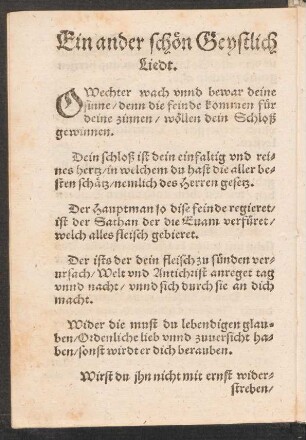 Ein ander schön Geystlich
Liedt.
O Wechter wach vnnd bewar deine
sinne/denn die feinde kommen für
deine zinnen/wöllen dein Schloß
gewinnen.
Dein schloß ist dein einfaltig vnd rei-
nes hertz/in welchem du hast die aller be-
sten schätz/nemlich des Herren gesetz.
Der Hauptman so dise feinde regieret/
ist der Sathan der die Euam verfüret/
welch alles fleisch gebieret.
Der ists der dein fleisch zu sünden ver-
ursach/Welt vnd Antichrist anreget tag
vnnd nacht/vnnd sich durch sie an dich
macht.
Wider die must du lebendigen glau-
ben/Ordenliche lieb vnnd zuuersicht ha-
ben/sonst wirdt er dich berauben.
Wirst du jhn nicht mit ernst wider-
streben/